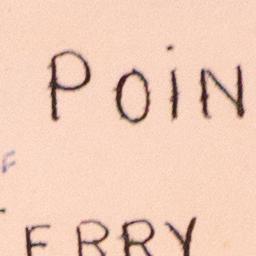 POiN
F
ERRY